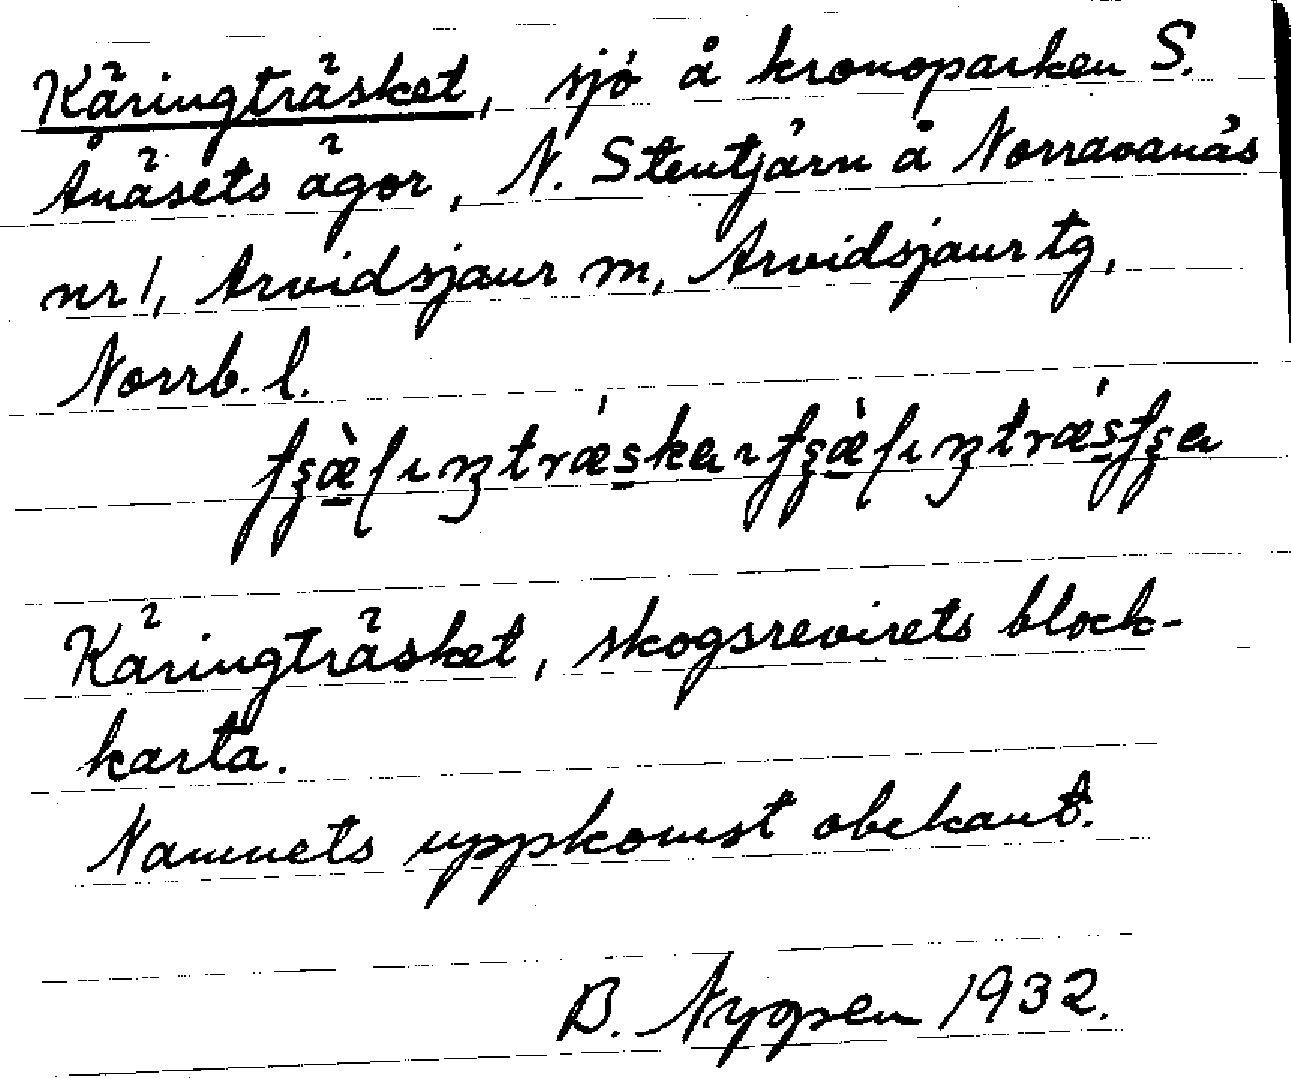 Käringträsket, sjö å kronoparken S.
Ånäsets ägor, N. Stentjärn å Norravanäs
nr 1, Arvidsjaur m, Arvidsjaur tg,
Norrb. l.
Käringträsket, skogsrevirets block-
karta.
Namnets uppkomst obekant.
B. Nygren 1932.